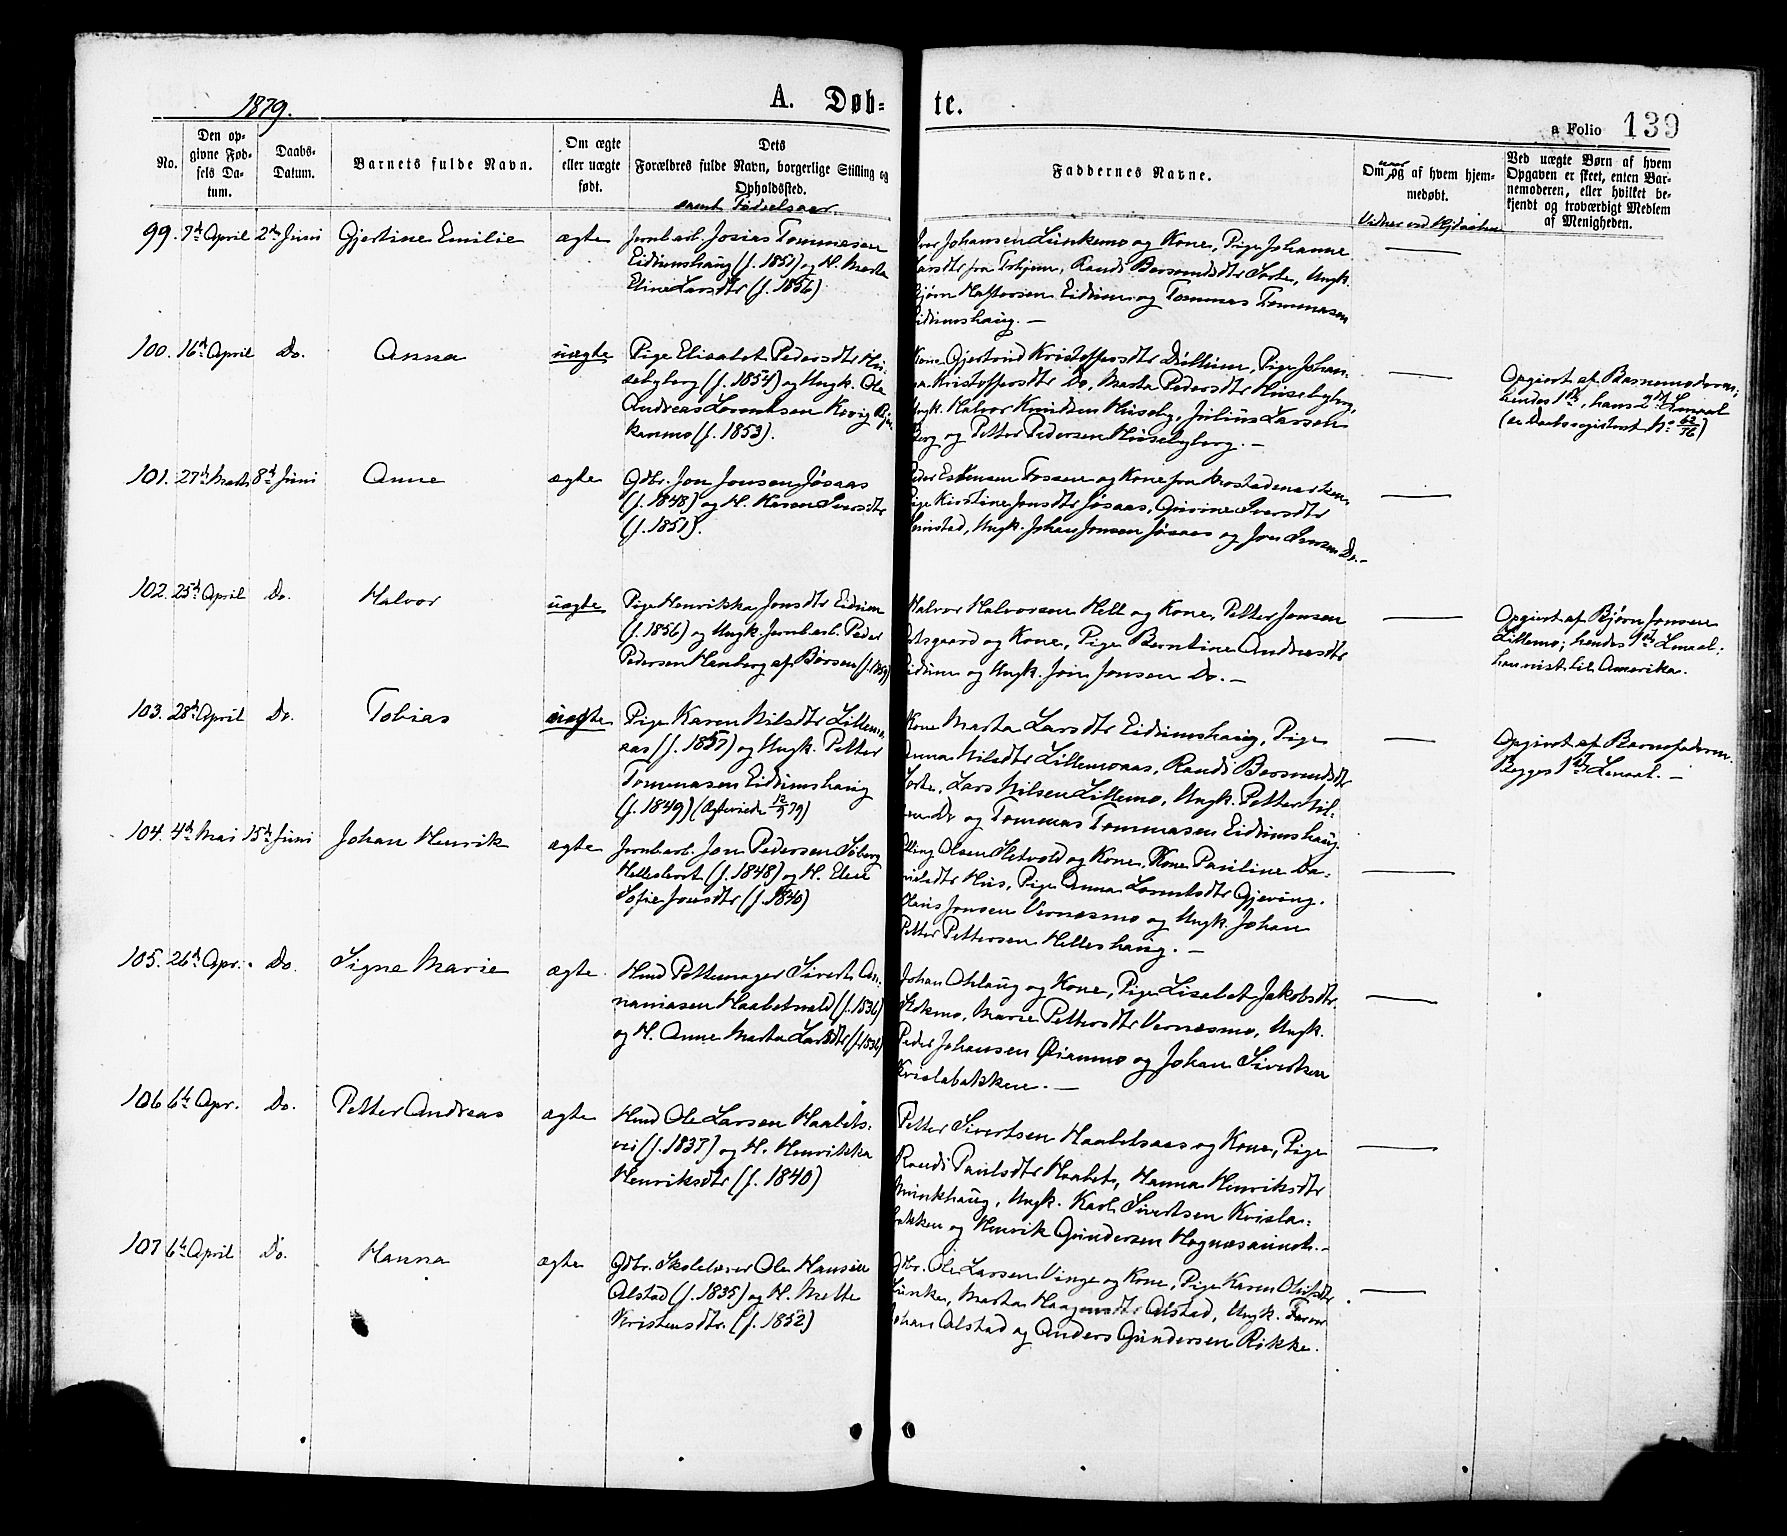 1879.
A. Døb-
te.
a Folio 139
No.
Den op-
givne Fød-
sels Da-
tum.
Daabs-
Datum.
Barnets fulde Navn.
Om ægte
eller uægte
født.
Dets
Forældres fulde Navn, borgerlige Stilling og
Opholdssted.
samt Fødselsaar.
Faddernes Navne.
Om og af hvem hjem-
naar
medøbt.
Vidner ved Hjdaaben
Ved uægte Børn af hvem
Opgaven er skeet, enten Bar-
nemoderen, eller hvilket be-
kjendt og troværdigt Medlem
af Menigheden.
99. 7de April 2den Juni Gjertine Emilie ægte
Jernbarb. Josias Tommesen
Eidumshaug (f. 1851) og H. Marta
Eline Larsdtr (f. 1856)
Iver Johansen Lunkemo og Kone, Pige Johanne
Larsdtr fra Trhjem, Randi Bersvendsdtr Sorte, Ungk.
Bjørn Haftorsen Eidum og Tommas Tommasen
Eidumshaug. —
100. 16de April Do. Anna uægte
Pige Elisabet Pedersdtr Hu-
sebyberg (f. 1854) og Ungk. Ole
Andreas Lorentsen
kanmo (f. 1853).
Kone Gjertrud Kristoffersdtr Dullum, Pige Johan-
na Kristoffersdtr Do, Marta Pedersdtr Husebyberg,
Ungk. Halvor Knudsen Huseby, Julius Larsen
Berg og Petter Pedersen Husebyberg. —
Opgivet af Barnemoderen;
hendes 1ste, hans 2det Lemaal
(se Daabsregistret No 62/76)
101. 27de Marts 8de Juni Anne ægte
Gdbr. Jon Jonsen Jøsaas
(f. 1848) og H. Karen Iversdtr
(f. 1851).
Peder Estensen Fossen og Kone fra Mostadmarken,
Pige Kirstine Jonsdtr Jøsaas, Gurine Iversdtr
Ungk. Johan Jonsen Jøsaas og Jon Iversen Do. —
102. 25de April Do. Halvor uægte
Pige Henrikka Jonsdtr Eidum
(f. 1856) og Ungk. Jernbarb. Peder
Pedersen Menberg af Børsen (f. 1859)
Halvor Halvorsen Hell og Kone, Petter Jonsen
og Kone, Pige Berntine Andreasdtr
Eidum og Ungk. Jon Jonsen Do. —
Opgivet af Bjørn Jonsen
Lillemo; hendes 1ste Lemaal;
han reist til Amerika.
103. 28de April Do. Tobias uægte
Pige Karen Nilsdtr Lillemo-
aas (f. 1857) og Ungk. Petter
Tommasen Eidumshaug
(f. 1849) (Ægteviede 12/7 79)
Kone Marta Larsdtr Eidumshaug, Pige
Anna Nilsdtr Lillemoaas, Randi Bersvendsdtr
Sorte, Lars Nilsen Lillemo, Ungk. Petter Nil-
sen Do og Tommas Tommasen Eidumshaug.
Opgivet af Barnefaderen.
Begges 1ste Lemaal. —
104. 4de Mai 15de Juni Johan Henrik ægte
Jernbarb. Jon Pedersen Søberg
(f. 1848) og H. Elen
Sofie Jonsdtr (f. 1840)
Elling Olsen Sletvold og Kone, Kone Pauline Da-
nielsdtr Hus, Pige Anna Lorntsdtr Gjeving,
Olaus Jonsen Vernesmo og Ungk. Johan
Petter Pettersen Helleshaug. —
105. 26de Apr. Do. Signe Marie ægte
Hmd Pottemager Sivert An-
naniasen Haabetvald (f. 1836)
og H. Anne Marta Larsdtr (f. 1836)
Johan Øhlaug og Kone, Pige Lisabet Jakobsdtr
Stokmo, Marie Pettersdtr Vernesmo, Ungk.
Peder Johansen Øianmo og Johan Sivertsen
Kvislabakken. —
106 6te Apr. Do. Petter Andreas ægte
Hmd Ole Larsen Haabets-
(f. 1837) og H. Henrikka
Henriksdtr (f. 1840)
Petter Sivertsen Haabetsaas og Kone, Pige
Randi Paulsdtr Haabet, Hanna Henriksdtr
Munkhaug, Ungk. Karl Sivertsen Kvisla-
bakken og Henrik Gundersen —
107 6te April Do. Hanna ægte
Gdbr. Skolelærer Ole Hansen
Alstad (f. 1835) og H. Mette
Kristensdtr. (f. 1852)
Gdbr. Ole Larsen Vinge og Kone, Pige Karen Olufsdtr
Lunke, Marta Haagensdtr Alstad, Ungk. Farver
Johan Alstad og Anders Gundersen Røkke.